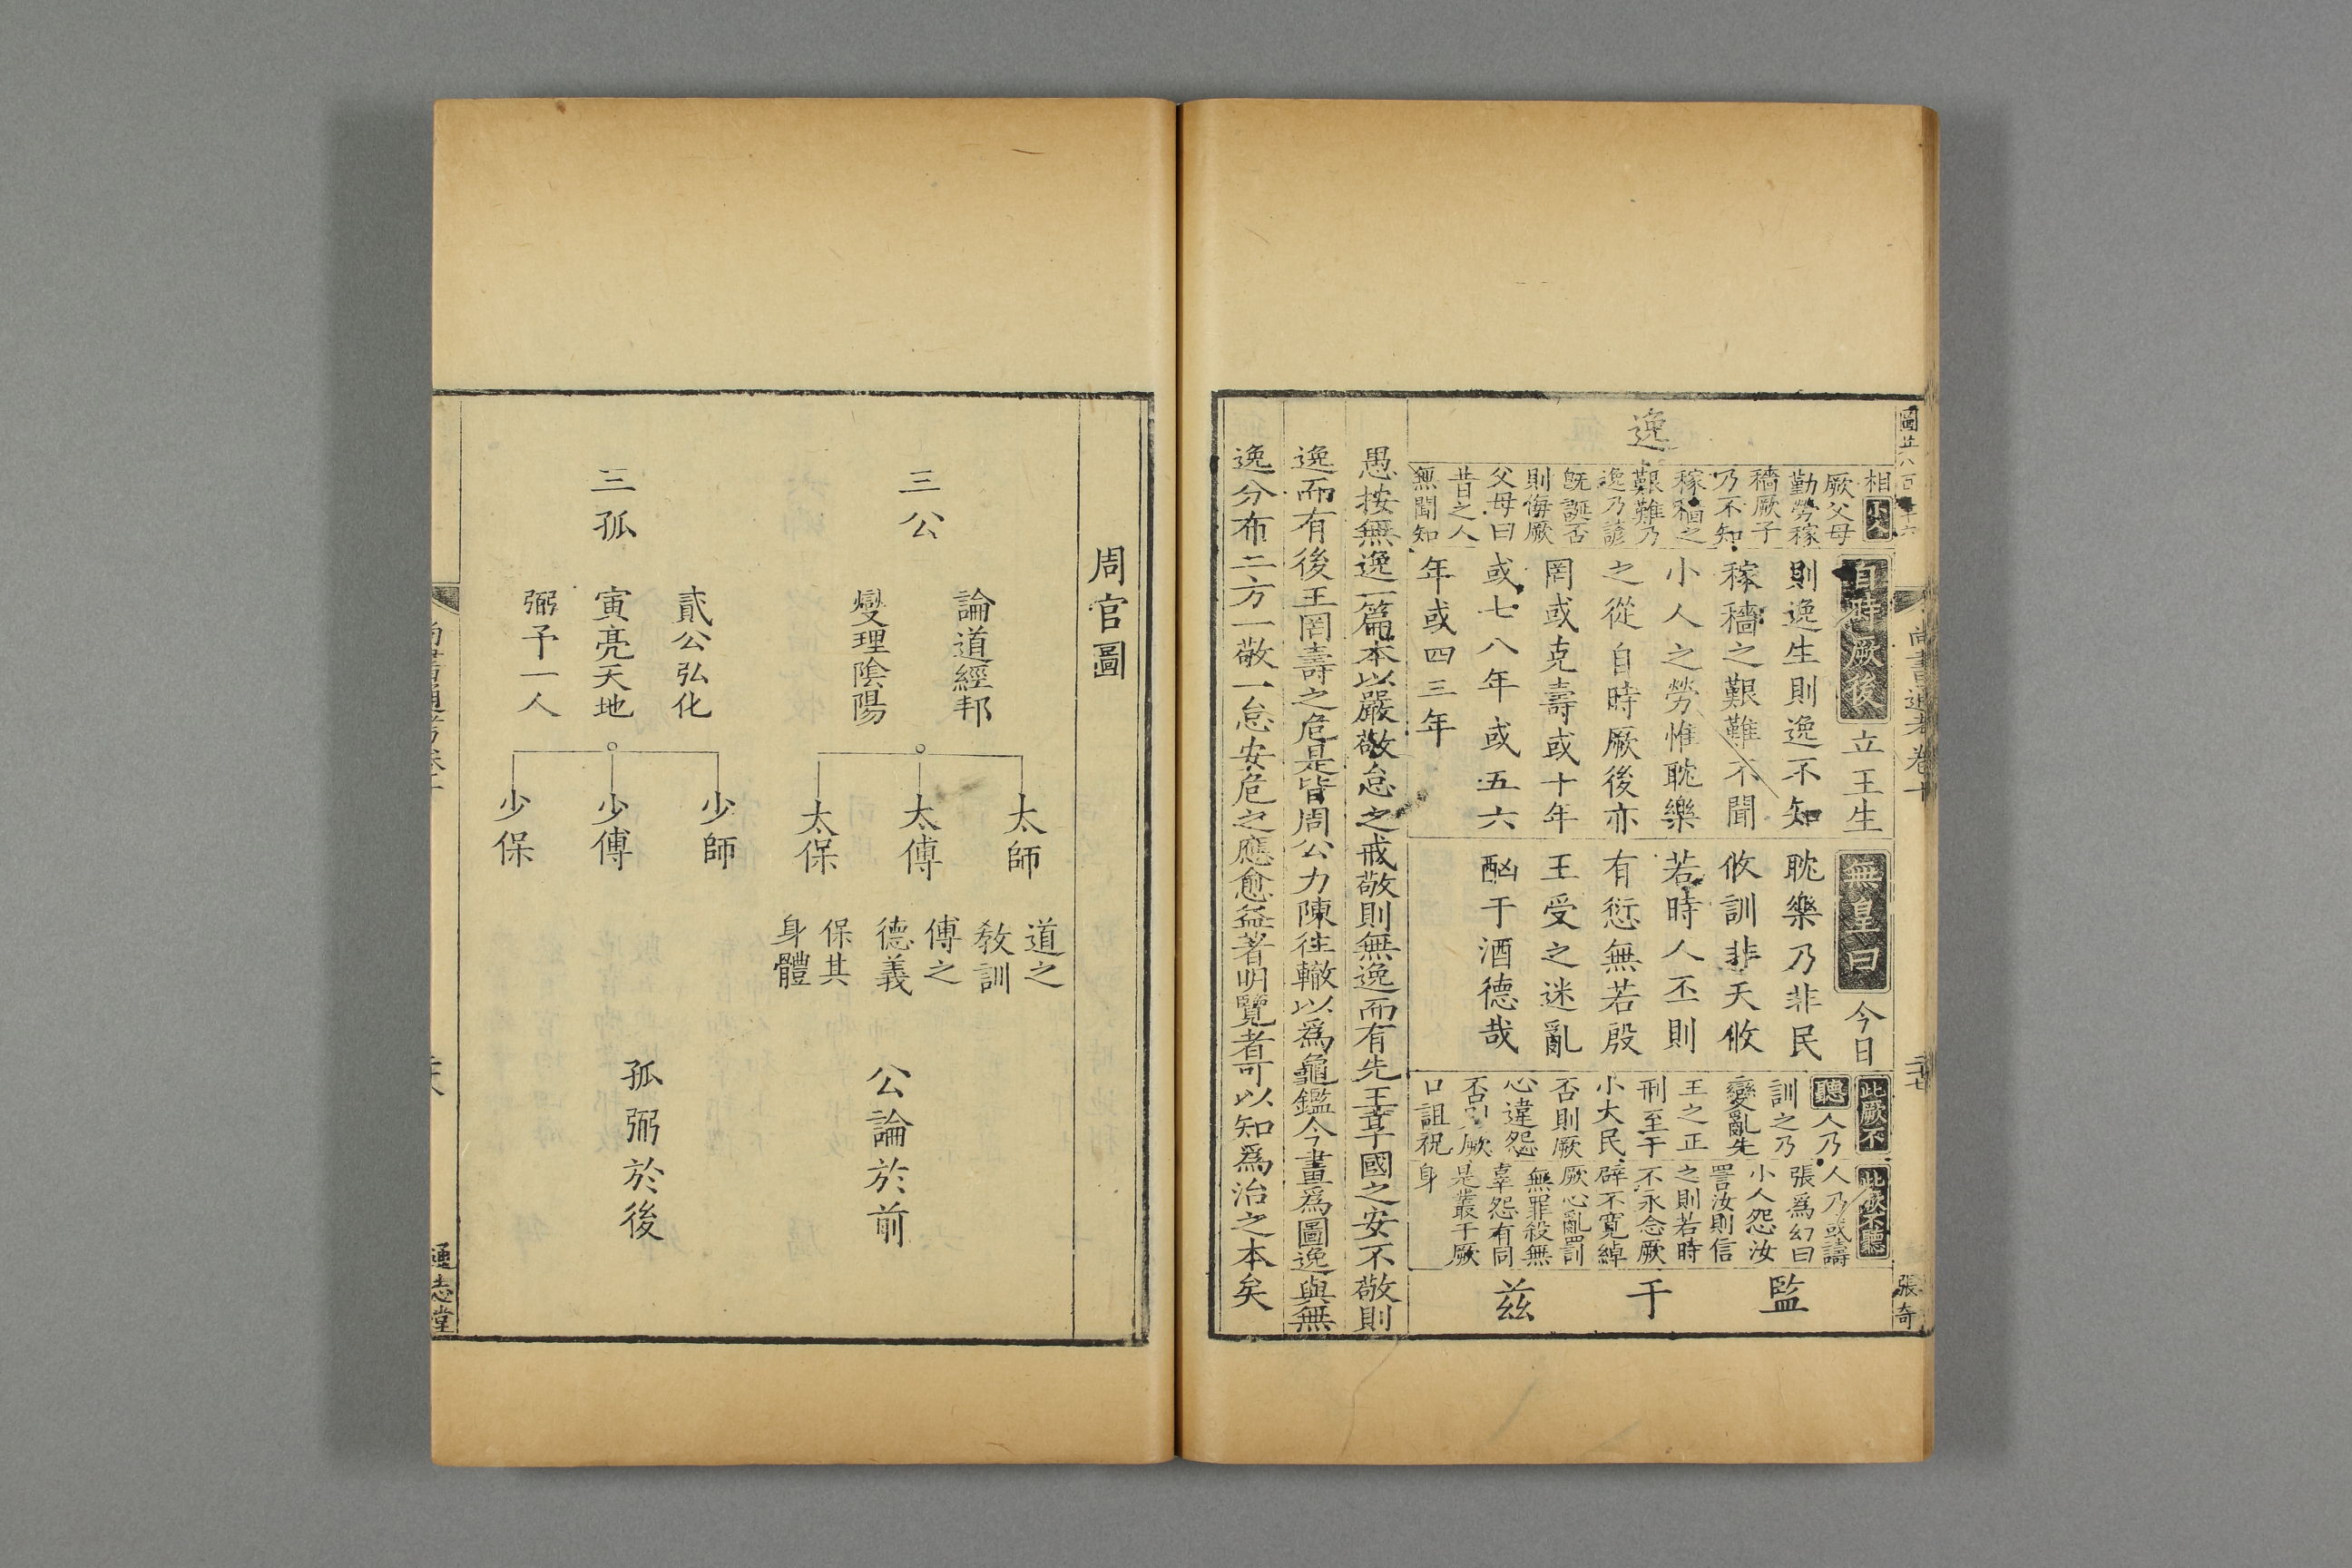 逸
相小人
厥父母
勤勞稼
穡厥子
乃不知
稼穡之
艱難乃
逸乃諺
旣誕否
則侮厥
父母曰
昔之人
無聞知
自時厥後立王生
則逸生則逸不知
稼穡之艱難不聞
小人之勞惟耽樂
之從自時厥後亦
罔或克壽或十年
或七八年或五六
年或四三年
無皇曰今日
耽樂乃非民
攸訓非天攸
若時人丕則
有愆無若殷
王受之迷亂
酗于酒德哉
此厥不
聽人乃
訓之乃
變亂先
王之正
刑至于
小大民
否則厥
心違怨
否則厥
口詛祝
此厥不聽
人乃或譸
張爲幻曰
小人怨汝
詈汝則信
之則若時
不永念厥
辟不寬綽
厥心亂罰
無罪殺無
辜怨有同
是叢于厥
身
監
于
兹
愚按無逸一篇本以嚴敬怠之戒敬則無逸而有先王享國之安不敬則
逸而有後王罔壽之危是皆周公力陳往轍以爲龜鑑今畫爲圖逸與無
逸分布二方一敬一怠安危之應愈益著明覽者可以知爲治之本矣
尚書通考卷十
二十七
張奇
周官圖
三公
論道經邦
燮理陰陽
太師
太傅
太保
道之
敎訓
傅之
德義
保其
身體
公論於前
三孤
貳公弘化
寅亮天地
弼予一人
少師
少傅
少保
孤弼於後
通志堂